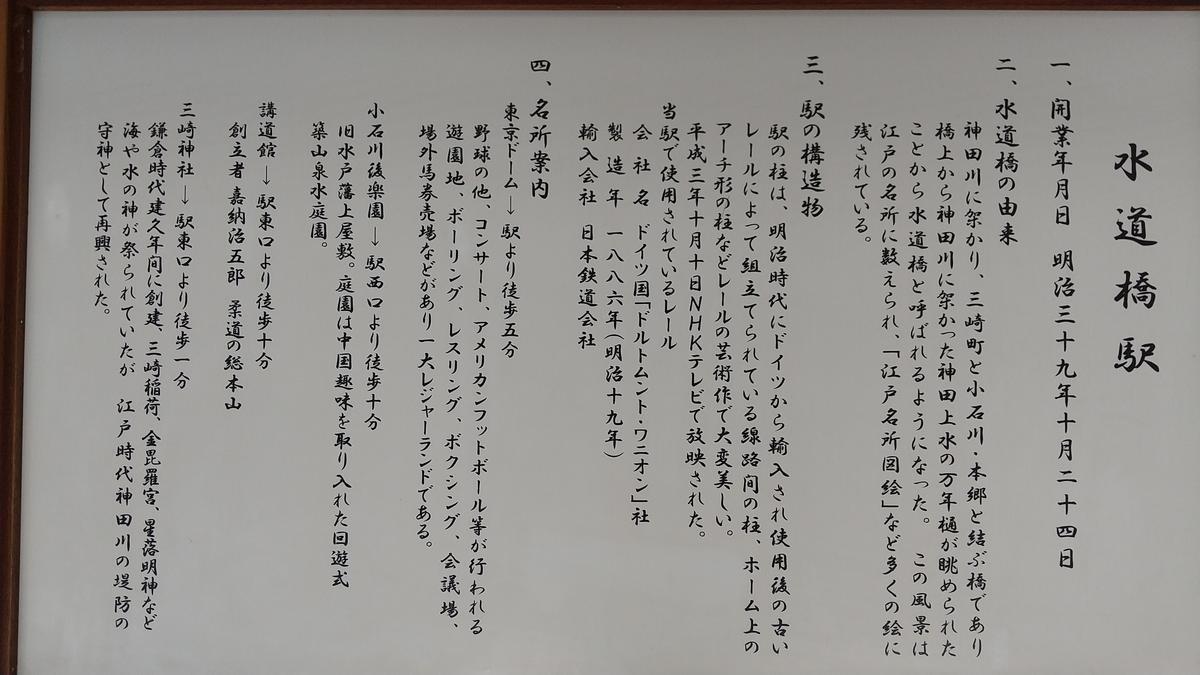 水道橋駅
一、開業年月日　明治三十九年十月二十四日
二、水道橋の由来
神田川に架かり、三崎町と小石川・本郷と結ぶ橋であり
橋上から神田川に架かった神田上水の万年樋が眺められた
ことから水道橋と呼ばれるようになった。　この風景は
江戸の名所に数えられ、「江戸名所図絵」など多くの絵に
残されている。
三、駅の構造物
駅の柱は、明治時代にドイツから輸入され使用後の古い
レールによって組立てられている線路間の柱、ホーム上の
アーチ形の柱などレールの芸術作で大変美しい。
平成三年十月十日NHKテレビで放映された。
当駅で使用されているレール
会社名　ドイツ国「ドルトムント・ワニオン」社
製造年　一八八六年（明治十九年）
輸入会社　日本鉄道会社
四、名所案内
東京ドーム→駅より徒歩五分
野球の他、コンサート、アメリカンフットボール等が行われる
遊園地、ボーリング、レスリング、ボクシング、会議場、
場外馬券売場などがあり一大レジャーランドである。
小石川後楽園→駅西口より徒歩十分
旧水戸藩上屋敷。庭園は中国趣味を取り入れた回遊式
築山泉水庭園。
講道館→駅東口より徒歩十分
創立者　嘉納治五郎　柔道の総本山
三崎神社→駅東口より徒歩一分
鎌倉時代建久年間に創建、三崎稲荷、金毘羅宮、星落明神など
海や水の神が祭られていたが　江戸時代神田川の堤防の
守神として再興された。